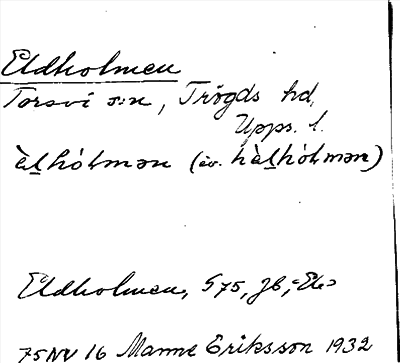 Eldholmen
Torsvi s:n, Trögds hd,
Upps. l.
àlhólmən (äv. hàlhólmən)
Eldholmen, S 75, Jb,
75 NV 16 Manne Eriksson 1932